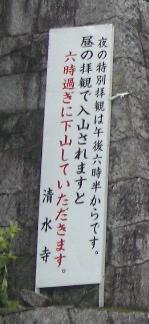 夜の特別拝観は午後六時半からです。
昼の拝観で入山されますと
六時過ぎに下山していただきます。
清水寺